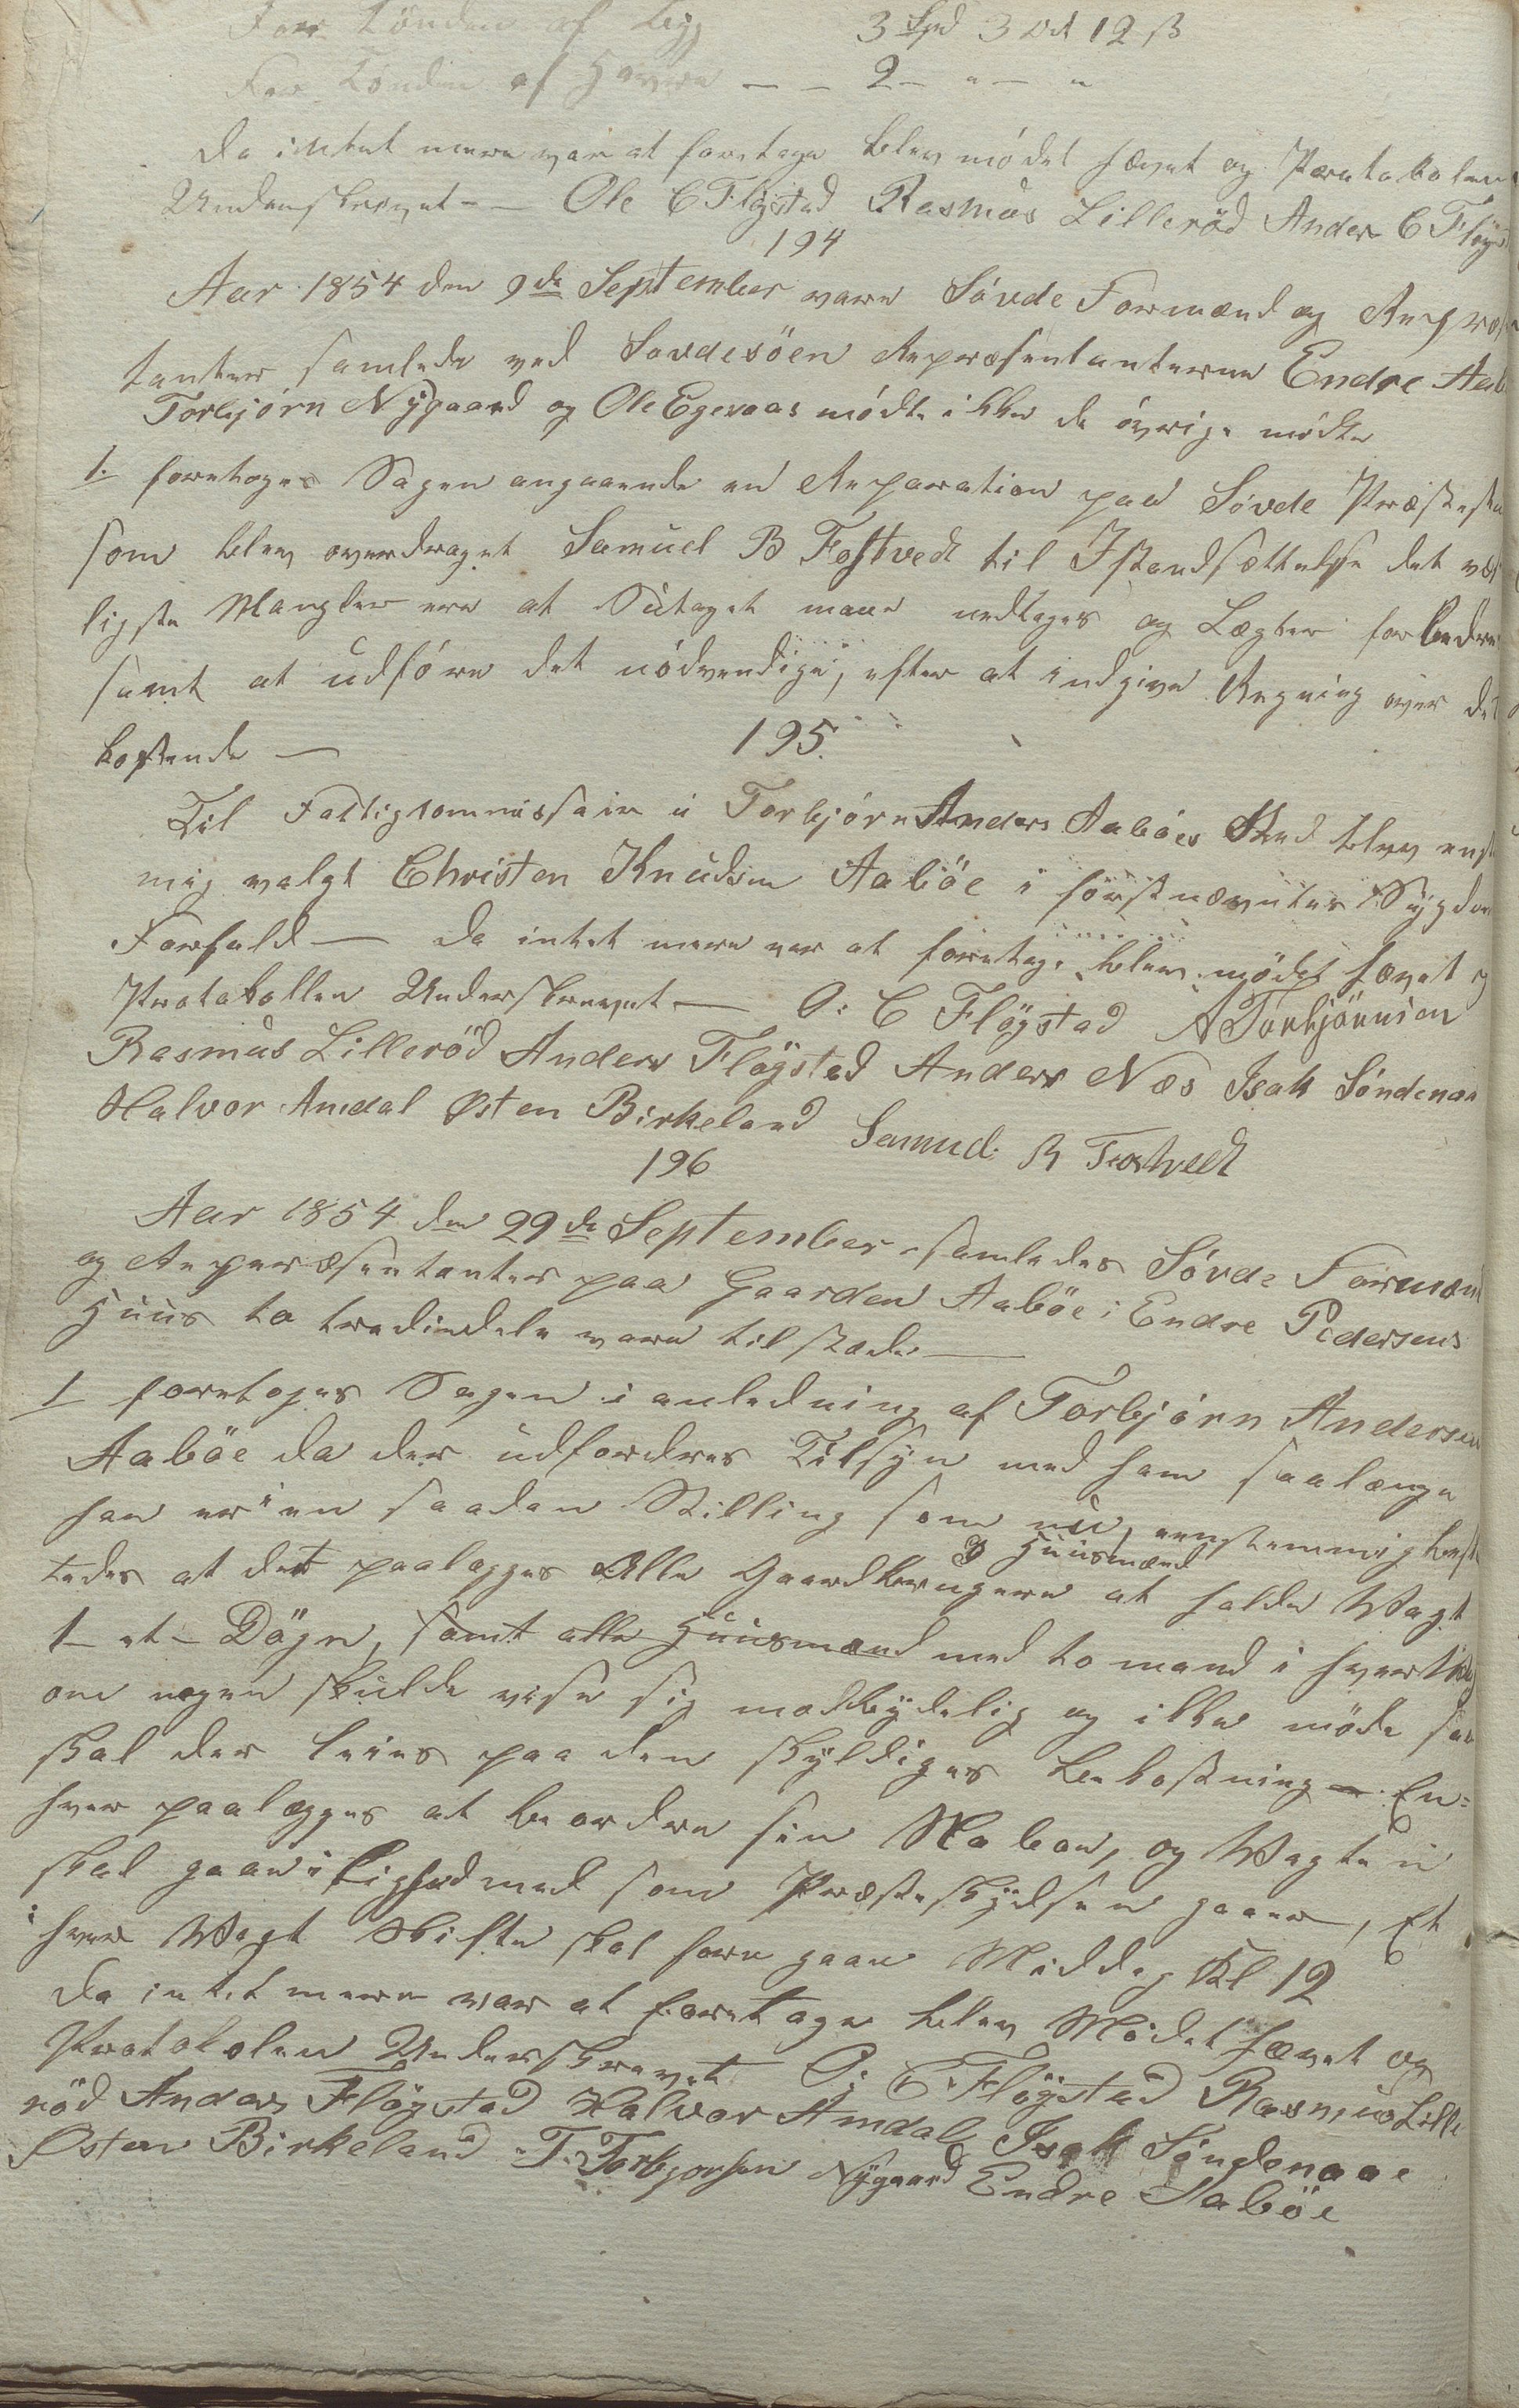 For Tönden af Byg 3 Spd 3 Ort 12 ß
For Tönden af Havre — — 2 — " — "
Da intet mere var at foretage blev mödet hævet og Protokolen
Underskrevet — Ole C Flögstad Rasmus Lilleröd Anders C Flögs
194
Aar 1854 den 9de September vare Sövde Formænd og Repræsen
tanter samlede ved Sovdesöen Repræsentanterne Endre Aab
Torbjörn Nÿgaard og Ole Egeraas mödte ikke de övrige mödte
1. foretoges Sagen angaaende en Reparation paa Sövde Præstestu
som blev overdraget Samuel B Fostvedt til Istandsættelse det væs
ligste Mangler ere at Sutaget maae nedtages og Lægter forbedre
samt at udföre det nödvendige, efter at indgive Regning over det
kostende —
195.
Til Fattigkommissair i Torbjörn Anders Aaböes Sted blev enst
mig valgt Christen Knudsen Aaböe i förstnævntes Sÿgdom
Forfald — Da intet mere var at foretage blev mödet hævet og
Protokollen Underskrevet — O: C Flögstad A Torbjörnsen
Rasmus Lilleröd Anders Flögstad Anders Næs Isak Söndenaa
Halvor Amdal Østen Birkeland Samuel B Fostvedt
196
Aar 1854 den 29de September samledes Sövde Formænd
og Repræsentanter paa Gaarden Aaböe i Endre Pedersens
Huus to trediedele vare tilstæde —
1 foretoges Sagen i anledning af Torbjörn Andersen
Aaböe da der udfordres Tilsÿn med ham saalænge
han er i en saadan Stilling som nu, eenstemmig beslut
& Huusmænd
tedes at det paalægges Alle Gaardbrugere at holde Vagt
1 et Dögn, samt alle Huusmænd med to mand i hver Vagt
om nogen skulde vise sig modbÿdelig og ikke möde saa
skal der leies paa den skÿldiges bekostning — En=
hver paalægges at beordre sin Naboe, og Vagten
skal gaae i lighed med som Præsteskÿdsen gaaer, Et
hver Vagt Skifte skal foregaae Middag Kl 12
Da intet mere var at foretage blev Mödet hævet og
Protokolen Underskrevet O: C Flögstad Rasmus Lille
röd Anders Flögstad Halvor Amdal Isak Söndenaae
Østen Birkeland T. Torbjorsen Nÿgaard Endre Aaböe